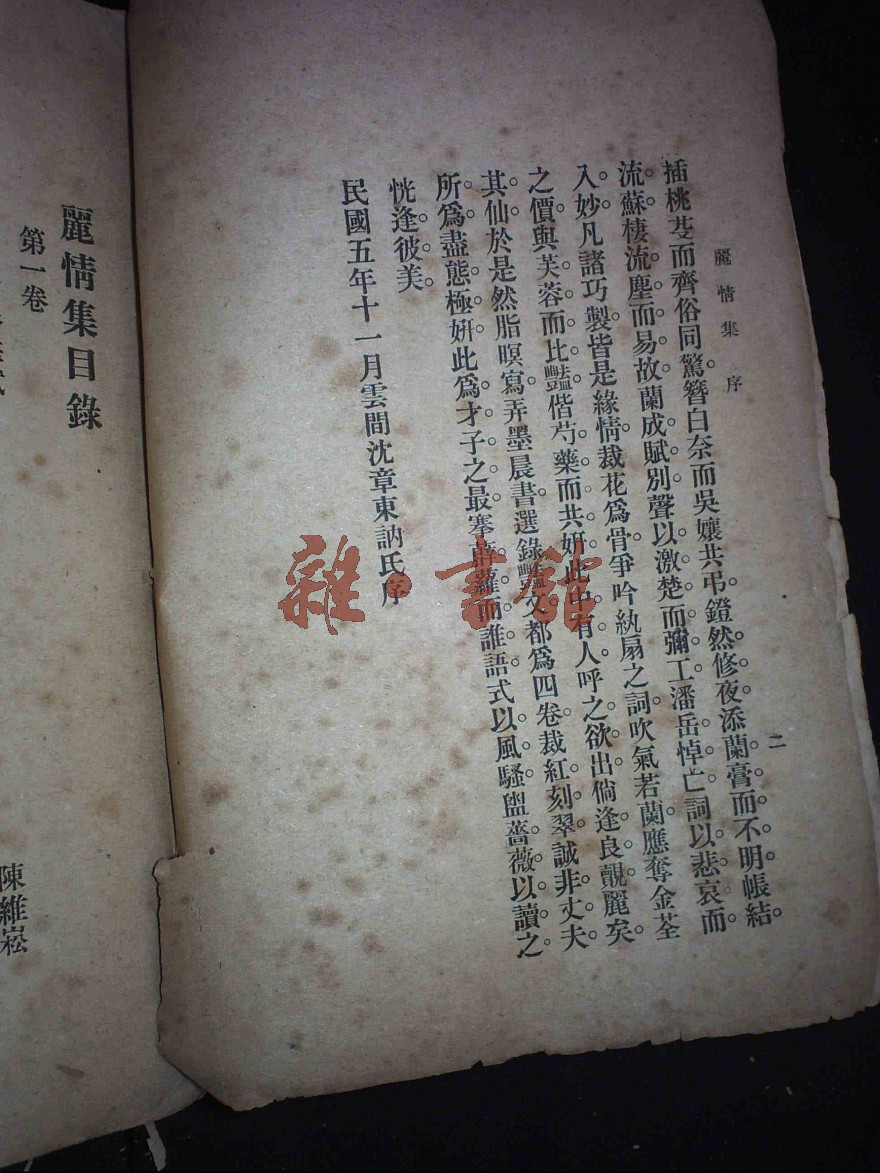 麗情集序
二
插桃芰而齊俗同驚。簪白奈而吳孃共弔。鐙然修夜。添蘭膏而不明。帳結。
流蘇。棲流塵而易故。蘭成賦別。聲以激楚而彌工。潘岳悼亡。詞以悲哀而。
入妙。凡諸巧製。皆是緣情。裁花爲骨。爭吟紈扇之詞。吹氣若蘭。應奪金荃
之價。與芙蓉而比豔。偕芍藥而共姸。此中有人。呼之欲出。倘逢良覿。麗矣。
其仙。於是然脂暝寫。弄墨晨書。選錄豔文。都爲四卷。裁紅刻翠。誠非丈夫
所爲。盡態極姸。此爲才子之最。搴蘅蘿而誰語。式以風騷。盥薔薇以讀之。
恍逢彼美。
民國五年十一月雲間沈章東訥氏序
雜·書館
麗情集目錄
第一卷
陳維崧